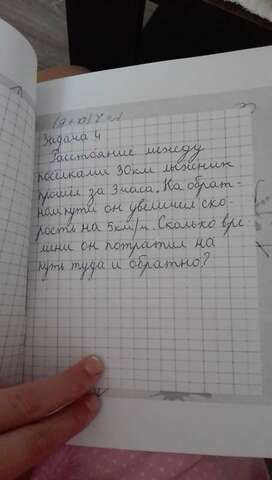 Задача 4
Расстояние между
поселками 30км лыжник
прошел за 3 часа. На обрат-
ном пути он увеличил ско-
рость на 5км/ч. Сколько вре-
мени он потратил на
путь туда и обратно?